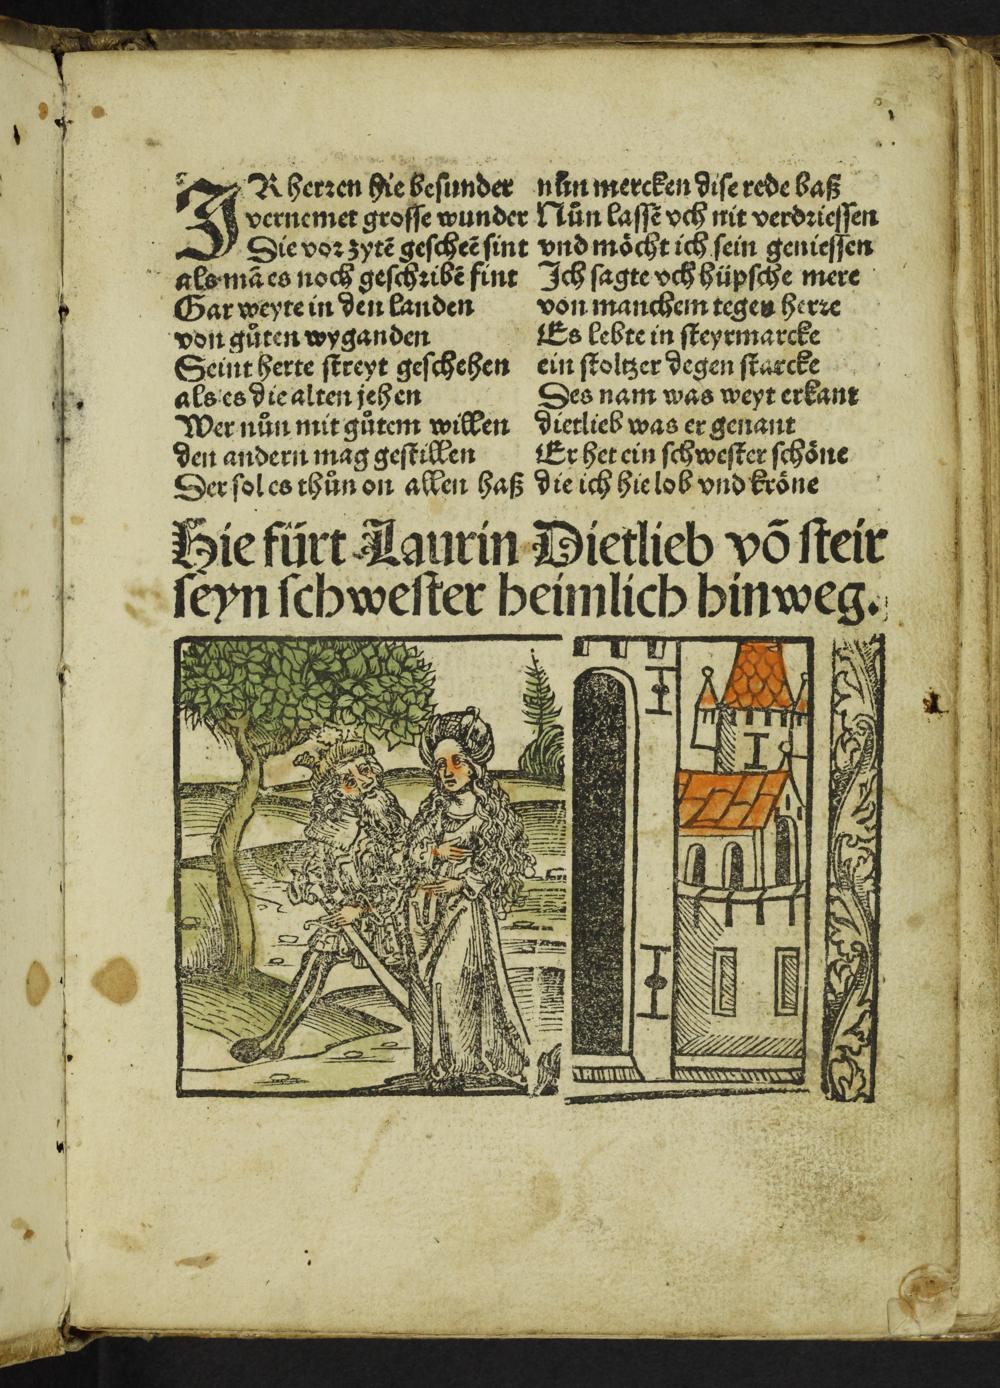 IR herren hie besunder
vernemet grosse wunder
Die vor zytē gescheē sint
als mā es noch geschribē fint
Gar weyte in den landen
von gůten wyganden
Seint herte streyt geschehen
als es die alten jehen
Wer nůn mit gůtem willen
den andern mag gestillen
Der sol es thůn on allen haß
nůn mercken dise rede baß
Nůn lassē vch nit verdriessen
vnd möcht ich sein geniessen
Ich sagte vch hüpsche mere
von manchem tegen herre
Es lebte in steyrmarcke
ein stoltzer degen starcke
Des nam was weyt erkant
dietlieb was er genant
Er het ein schwester schöne
die ich hie lob vnd kröne
Hie fürt Laurin Dietlieb vō steir
seyn schwester heimlich hinweg.